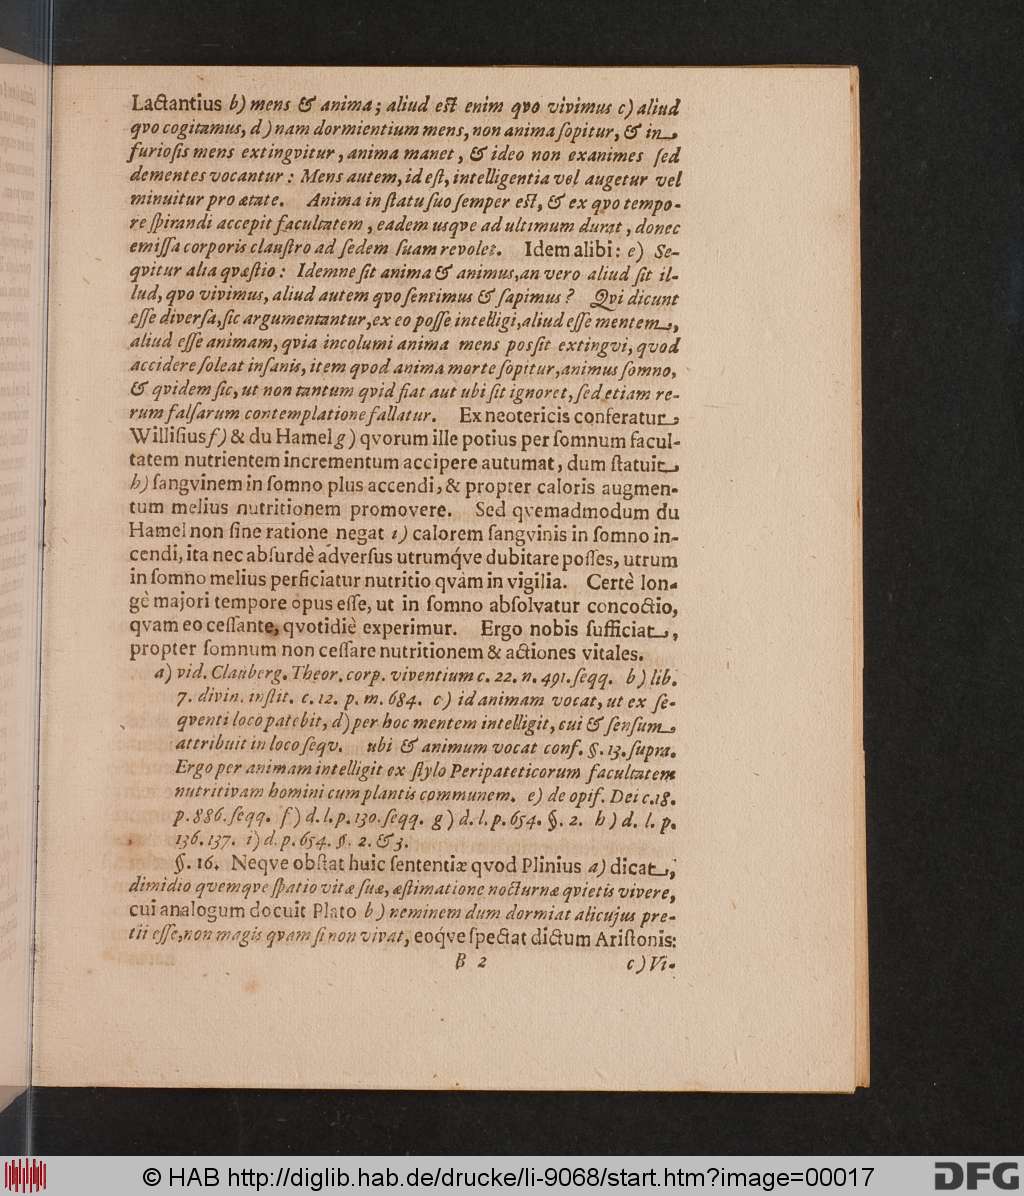 Lactantius b) mens & anima; aliud est enim qvo vivimus c) aliud
qvo cogitamus, d) nam dormientium mens, non anima ſopitur, & in
furioſis mens extingvitur, anima manet, & ideo non exanimes ſed
dementes vocantur: Mens autem, id eſt, intelligentia vel augetur vel
minuitur pro ætate. Anima in ſtatu ſuo ſemper est, & ex qvo tempo-
re ſpirandi accepit facultatem, eadem usqve ad ultimum durat, donec
emiſſa corporis clauſtro ad ſedem ſuam revolet. Idem alibi: e) Se-
qvitur alia qvæſtio: Idemne ſit anima & animus, an vero aliud ſit il-
lud, qvo vivimus, aliud autem qvo ſentimus & ſapimus? Qvi dicunt
eſſe diverſa, ſic argumentantur, ex eo poſſe intelligi, aliud eſſe mentem,
aliud eſſe animam, qvia incolumi anima mens posſit extingvi, qvod
accidere ſoleat inſanis, item qvod anima morte ſopitur, animus ſomno,
& qvidem ſic, ut non tantum qvid fiat aut ubi ſit ignoret, ſed etiam re-
rum falſarum contemplatione fallatur. Ex neotericis conferatur
Williſius f) & du Hamel g) qvorum ille potius per ſomnum facul-
tatem nutrientem incrementum accipere autumat, dum ſtatuit
h) ſangvinem in ſomno plus accendi, & propter caloris augmen-
tum melius nutritionem promovere. Sed qvemadmodum du
Hamel non ſine ratione negat i) calorem ſangvinis in ſomno in-
cendi, ita nec abſurdè adverſus utrumq́ve dubitare poſſes, utrum
in ſomno melius perficiatur nutritio qvàm in vigilia. Certè lon-
gè majori tempore opus eſſe, ut in ſomno abſolvatur concoctio,
qvam eo ceſſante, qvotidiè experimur. Ergo nobis ſufficiat,
propter ſomnum non ceſſare nutritionem & actiones vitales.
a) vid. Clauberg. Theor. corp. viventium c. 22. n. 491. ſeqq. b) lib.
7. divin. inſtit. c. 12. p. m. 684. c) id animam vocat, ut ex ſe-
qventi loco patebit, d) per hoc mentem intelligit, cui & ſenſum
attribuit in loco ſeqv. ubi & animum vocat conf. §. 13. ſupra.
Ergo per animam intelligit ex ſtylo Peripateticorum facultatem
nutritivam homini cum plantis communem. e) de opif. Dei c. 18.
p. 886. ſeqq. f) d. l. p. 130. ſeqq. g) d. l. p. 654. §. 2. h) d. l. p.
136. 137. i) d. p. 654. §. 2. & 3.
§. 16. Neqve obſtat huic ſententiæ qvod Plinius a) dicat,
dimidio qvemqve ſpatio vitæ ſuæ, æſtimatione nocturnæ qvietis vivere,
cui analogum docuit Plato b) neminem dum dormiat alicujus pre-
tii eſſe, non magis qvam ſi non vivat, eoq́ve ſpectat dictum Ariſtonis:
B 2 c) Vi-
© HAB http://diglib.hab.de/drucke/li-9068/start.htm?image=00017
DFG